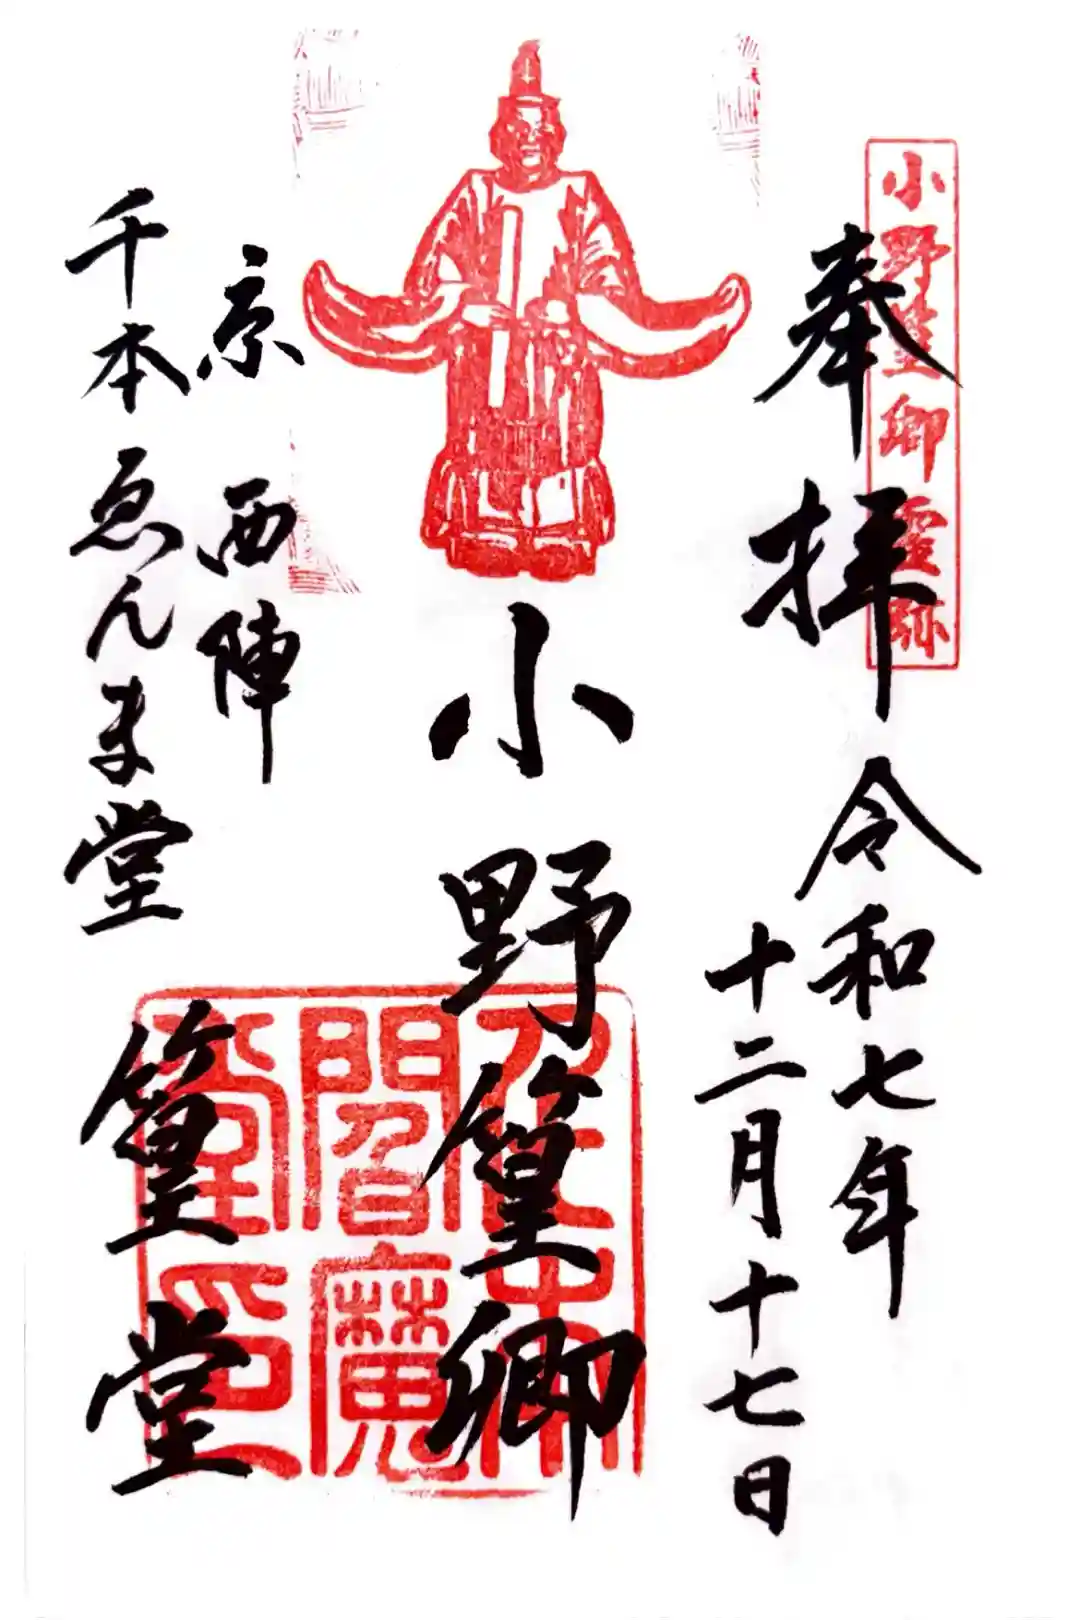 小野篁卿霊跡
奉拝
令和七年
十二月十七日
小野篁卿
京西陣
千本ゑんま堂
篁堂
閻魔
堂印